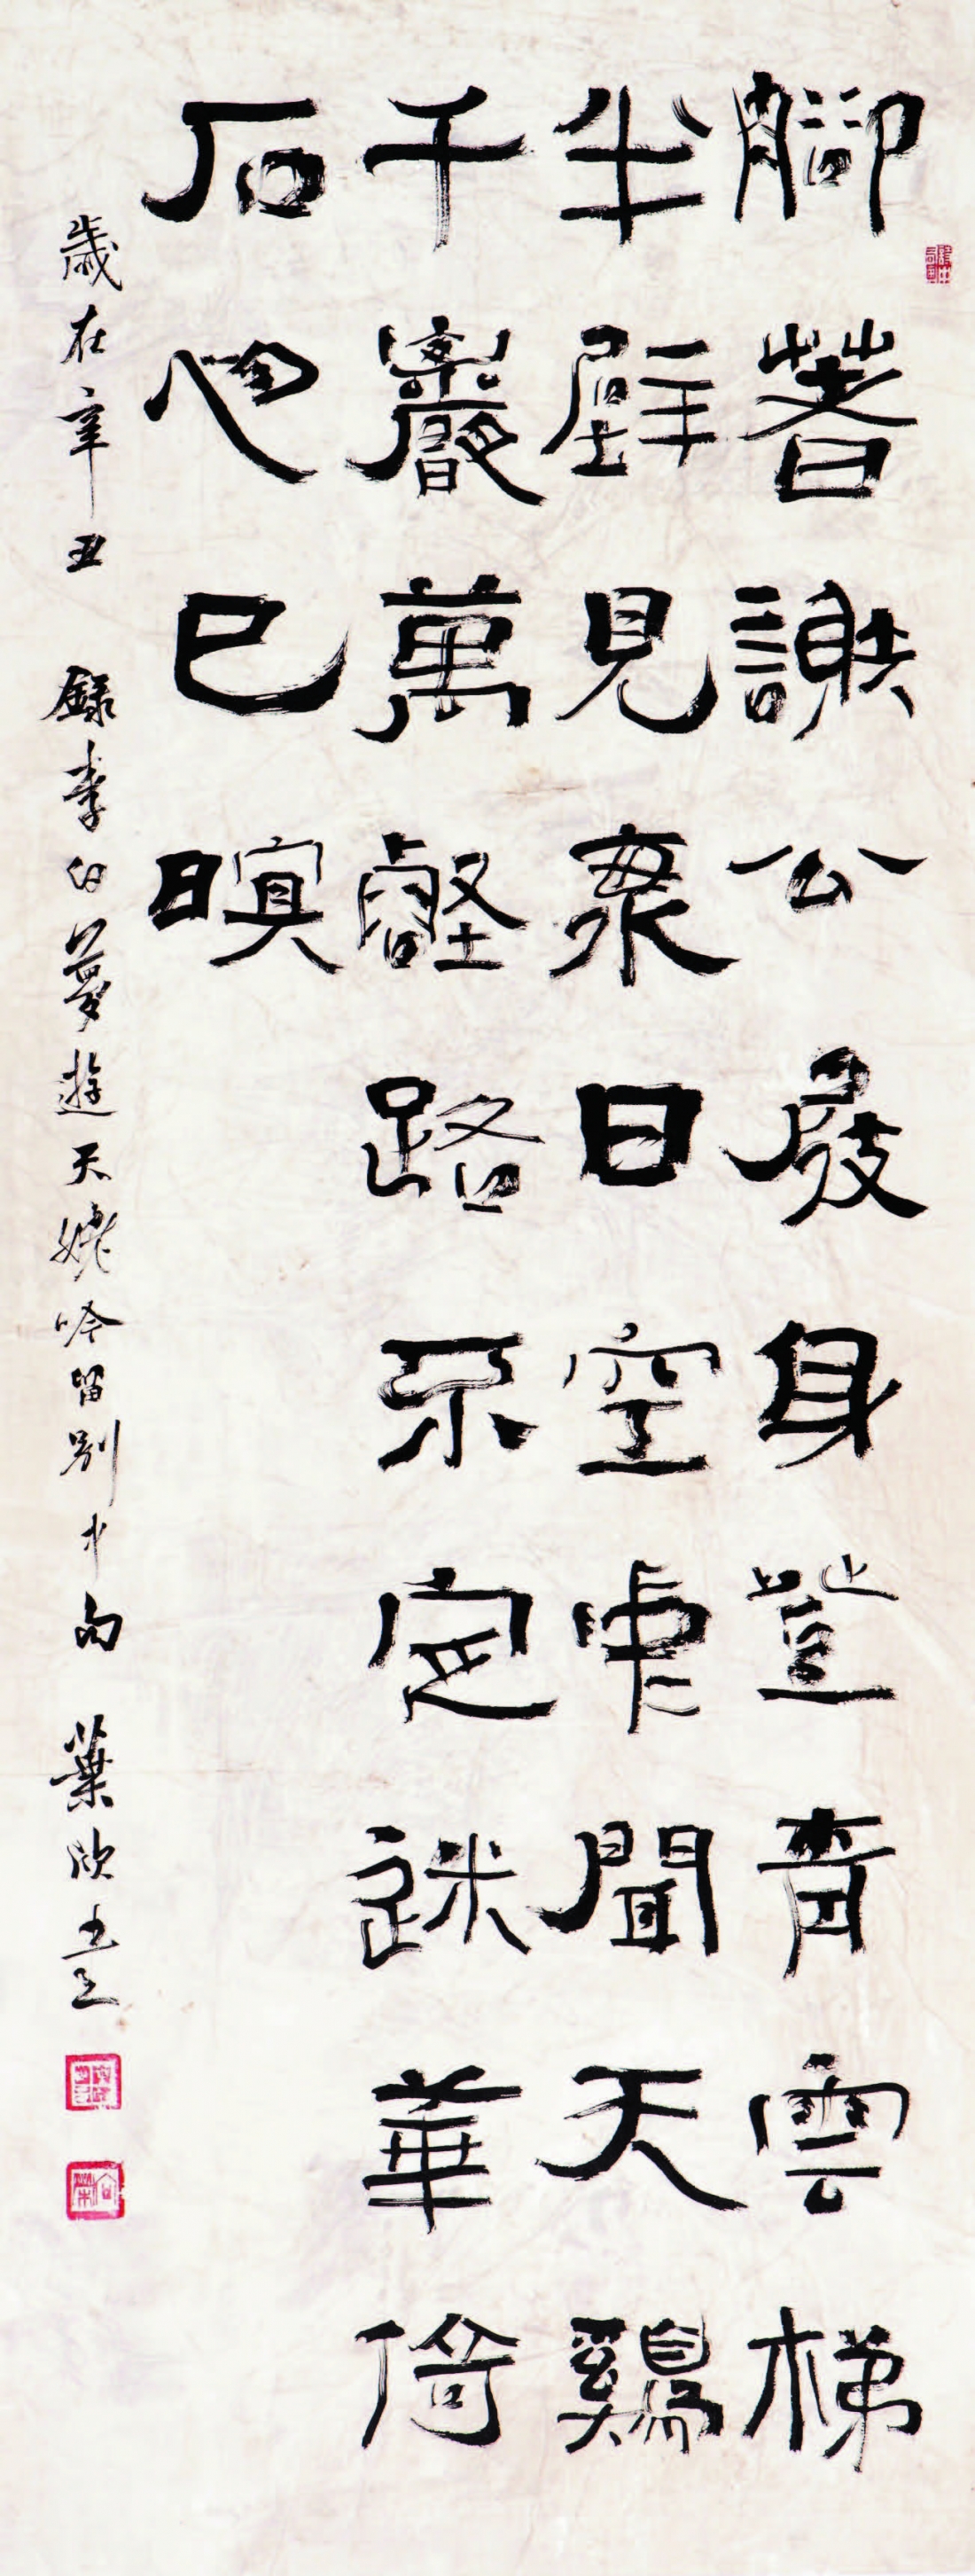 腳著謝公屐身登青雲梯
半壁見海日空中聞天鷄
千巖萬壑路不定迷華倚
石忽已暝
歲在辛丑 錄李白夢遊天姥吟留別中句 葉欣書